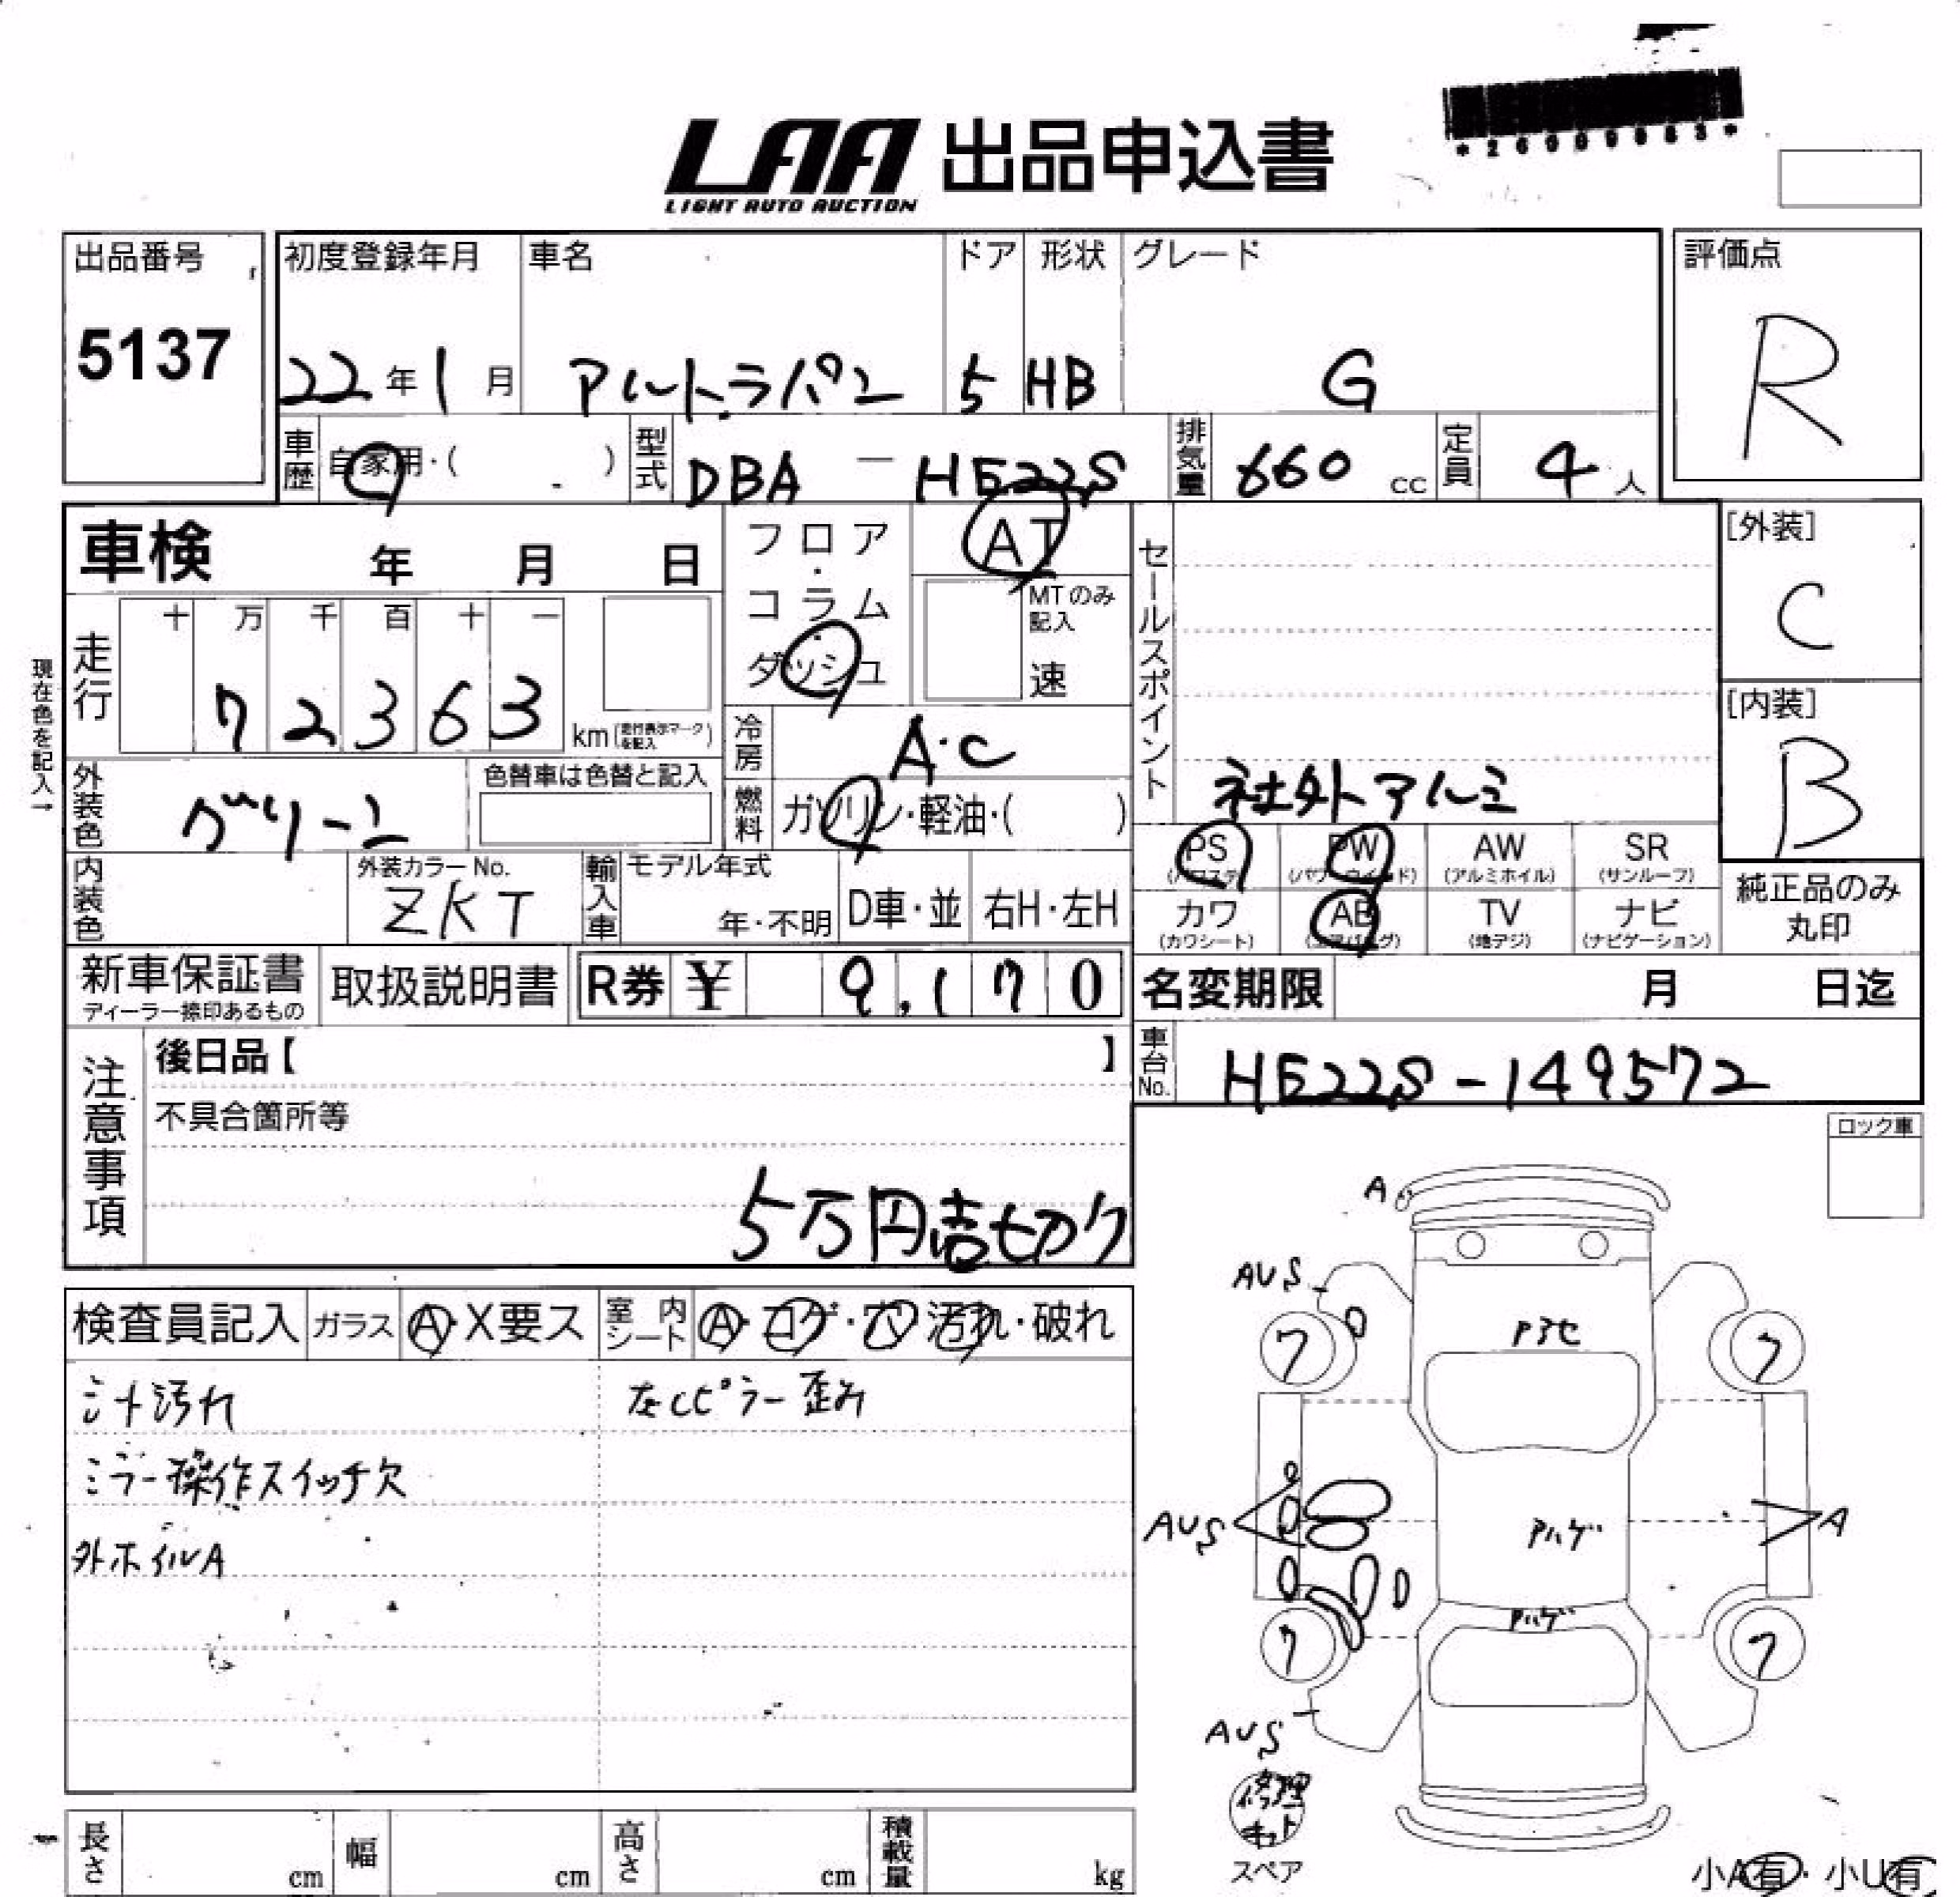 LAA 出品申込書
LIGHT AUTO AUCTION
出品番号 初度登録年月 車名 ドア 形状 グレード 評価点
5137 22年1月 アルトラパン 5 HB G R
車歴 自家用・( ) 型式 DBA - HE22S 排気量 660 cc 定員 4 人
車検 年 月 日 フロア・コラム・ダッシュ AT セールスポイント [外装]
C
MTのみ記入 速
現在色を記入→
走行 十 万 千 百 十 一
7 2 3 6 3 km(走行表示マークを記入)
[内装]
B
冷房 A・C
外装色 グリーン 色替車は色替と記入 燃料 ガソリン・軽油・( ) 社外アルミ
PS (パワステ) PW (パワーウインド) AW (アルミホイル) SR (サンルーフ)
内装色 外装カラーNo. ZKT 輸入車 モデル年式 年・不明 D車・並 右H・左H
カワ (カワシート) AB (エアバッグ) TV (地デジ) ナビ (ナビゲーション) 純正品のみ丸印
新車保証書 取扱説明書 R券 ¥ 9,170 名変期限 月 日迄
ディーラー捺印あるもの
注意事項 後日品【 】 車台No. HE22S-149572
不具合箇所等 ロック車
5万円売切り
検査員記入 ガラス A・X要ス 室内シート A・コゲ・穴・汚れ・破れ
シート汚れ 左Cピラー歪み
ミラー操作スイッチ欠
外ホイルA
A
AUS
7 アラセ 7
AUS アハゲ A
アハゲ
7 7
AUS
修理キット
スペア
長さ cm 幅 cm 高さ cm 積載量 kg
小A有・小U有